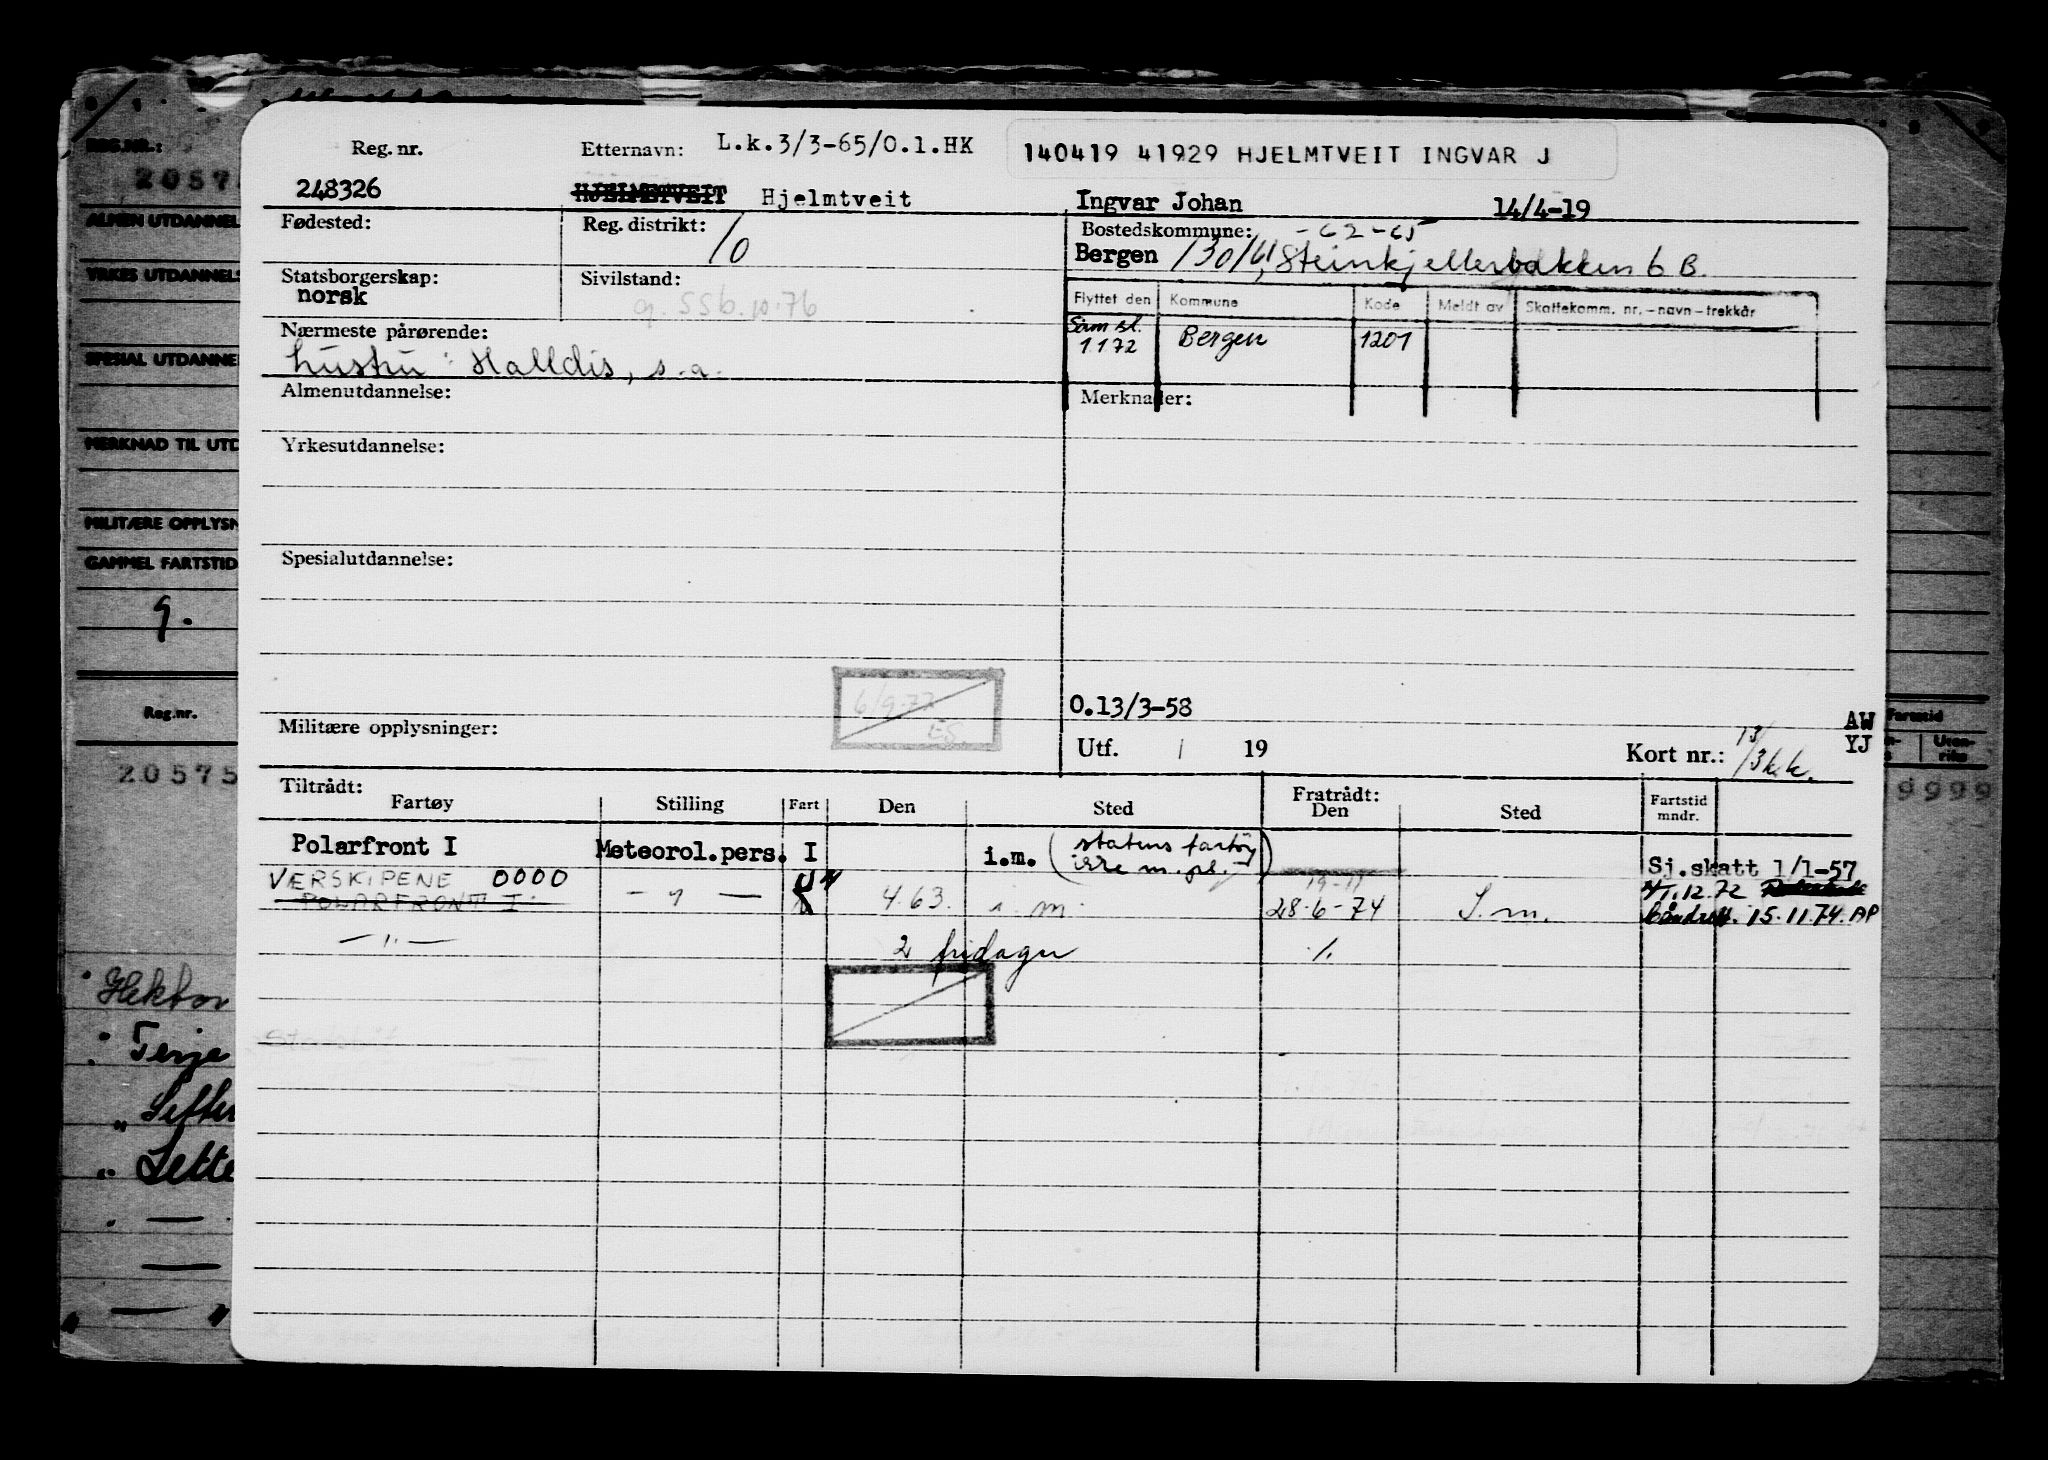 REG.NR.:
2057
ALMEN UTDANNEL
YRKES UTDANNELS
SPESIAL UTDANNE
MERKNAD TIL UTD
MILITÆRE OPPLYSN
GAMMEL FARTSTID
9.
Reg.nr.
20575
Hektor
Terje
Sette
Reg. nr.
Etternavn: L.k.3/3-65/O.l.HK
140419 41929 HJELMTVEIT INGVAR J
248326
HJELMTVEIT Hjelmtveit
Ingvar Johan 14/4-19
Fødested:
Reg. distrikt: 10
Bostedskommune: -62-65
Bergen 130/61, Steinkjellerbakken 6 B.
Statsborgerskap:
norsk
Sivilstand:
g. SSb.10.76
Flyttet den Kommune Kode Meldt av Skattekomm. nr. - navn - trekkår
Sam st.
1 1 72 Bergen 1201
Nærmeste pårørende:
hustru: Halldis, s.a.
Almenutdannelse:
Merknader:
Yrkesutdannelse:
Spesialutdannelse:
6/9-72
ES.
O.13/3-58
Militære opplysninger:
Utf. / 19
Kort nr.: 13/3 k.k.
AW
YJ
Fartstid
Uten-
riks
9999
Tiltrådt:
Fartøy Stilling Fart Den Sted
Fratrådt:
Den Sted
Fartstid
mndr.
Polarfront I Meteorol.pers. I i.m. (statens fartøy
ikke m.pl.) Sj.skatt 1/1-57
VÆRSKIPENE 0000
POLARFRONT I - " - U 4.63. i.m. 19-11
28-6-74 S.m. 1.12.72
15.11.74. AP
- " - 2 fridager %